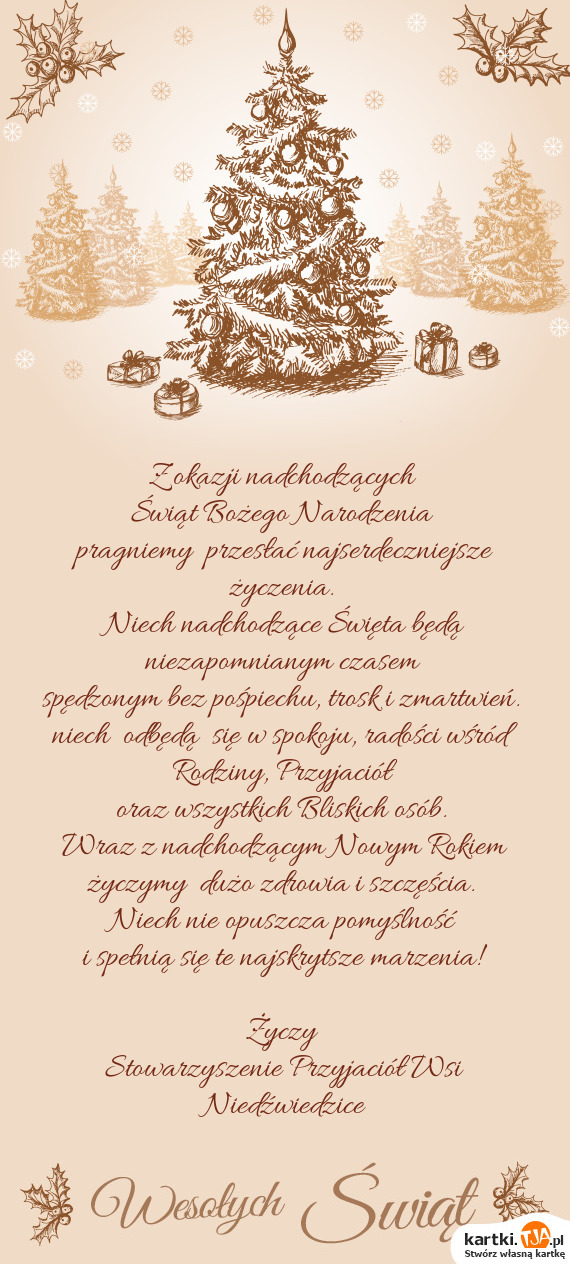 Z okazji nadchodzących
Świąt Bożego Narodzenia
pragniemy przesłać najserdeczniejsze
życzenia.
Niech nadchodzące Święta będą
niezapomnianym czasem
spędzonym bez pośpiechu, trosk i zmartwień.
niech odbędą się w spokoju, radości wśród
Rodziny, Przyjaciół
oraz wszystkich Bliskich osób.
Wraz z nadchodzącym Nowym Rokiem
życzymy dużo zdrowia i szczęścia.
Niech nie opuszcza pomyślność
i spełnią się te najskrytsze marzenia!
Życzy
Stowarzyszenie Przyjaciół Wsi
Niedźwiedzice
Wesołych Świąt
kartki.TJA.pl
Stwórz własną kartkę